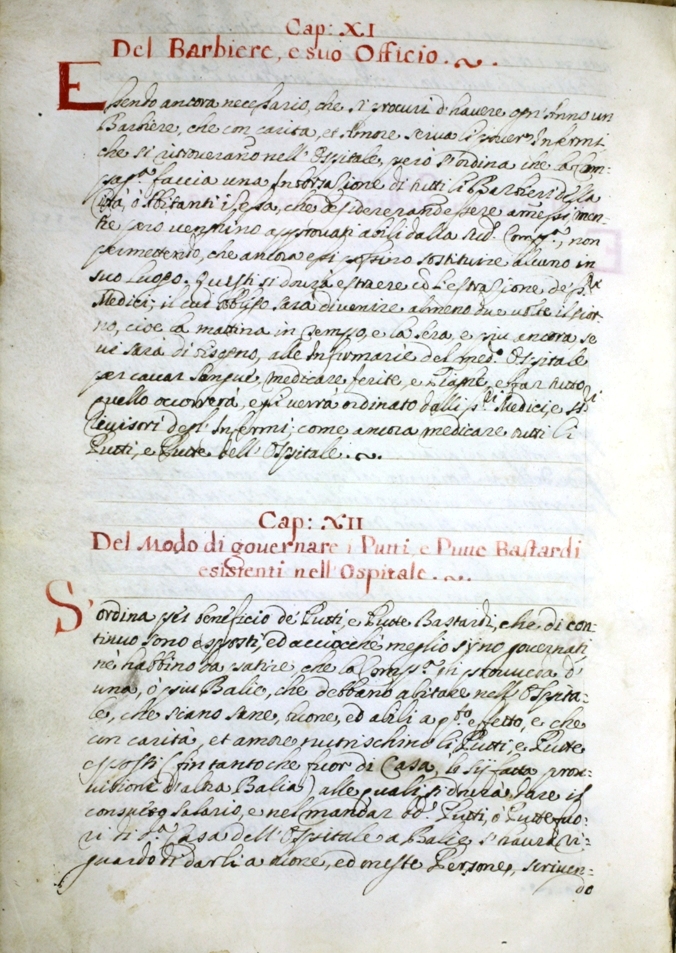 Cap: XI
Del Barbiere, e suo Officio.
Essendo ancora necessario, che si procuri d'havere ogn'Anno un
Barbiere, che con carità, et Amore serva li poveri Infermi
che si ritroverano nell'Ospitale, però s'ordina che la Com-
pag.ª faccia una Inborsazione di tutti li Barbieri della
Città, ò Abitanti in essa, che desidereranno essere amessi, men-
tre però venghino approvati abili dalla sud.ª Comp.ª, non
permettendo, che ancora essi possino sostituire alcuno in
suo luogo. Questi si dovrà estraere co l'estrazione de'
Medici; il cui obligo sarà di venire almeno due volte il gior-
no, cioè la mattina in tempo, e la sera, e più ancora se
vi sarà di bisogno, alle Infirmarie del med.º Ospitale
per cavar sangue, medicare ferite, e Piaghe, e far tutto
quello occorrerà, e gli verrà ordinato dalli s.ri Medici, e
Revisori degl'Infermi; come ancora medicare tutti li
Putti, e Putte dell'Ospitale.
Cap: XII
Del Modo di governare i Putti, e Putte Bastardi
esistenti nell'Ospitale.
S'ordina per beneficio de' Putti, e Putte Bastardi, che di con-
tinuo sono esposti, ed acciocchè meglio siino governati
nè habbino da patire, che la Comp.ª si provveda d'
una, ò più Balie, che debbano abitare nell'Ospita-
le, che siano sane, buone, ed abili a p.to effetto, e che
con carità, et amore nutrischino li Putti, e Putte
esposti (fin tanto che fuor di Casa, li sij fatta prov-
visione d'altra Balia) alle quali si dovrà dare il
consueto salario, e nel mandar d.i Putti, ò Putte fuo-
ri di d.ª Casa dell'Ospitale a Balie si haverà ri-
guardo di darli a buone, ed oneste Persone, scriven-
do